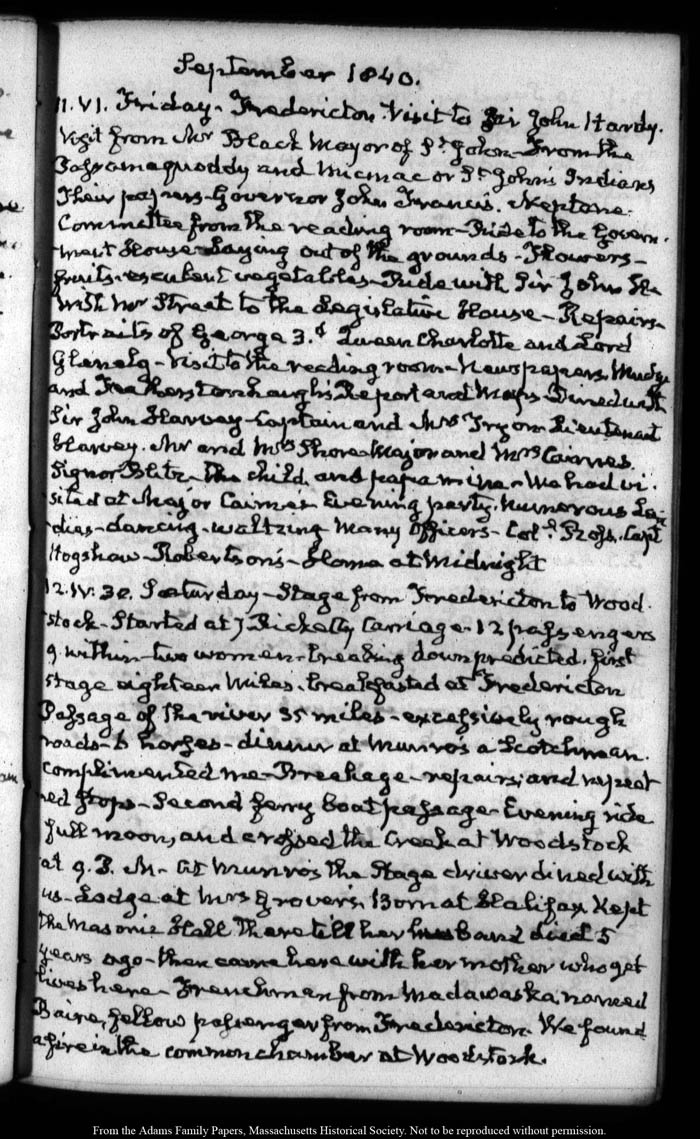 September 1840.
11. VI. Friday. Fredericton. Visit to Sir John Hardy.
Visit from Mr Black Mayor of St. John. From the
Passamaquoddy and Micmac or St. John's Indians
Their papers. Governor John Francis. Neptune.
Committee from the reading room. Ride to the Govern-
ment House. Laying out of the grounds. Flowers-
fruits. esculent vegetables. Ride with Sir John He
With Mr Street to the Legislative House. Repairs.
Portraits of George 3.d Queen Charlotte and Lord
Glenelg. Visit to the reading room. Newspapers. Mudge
and Featherstonhaugh's Report and Maps. Dined with
Sir John Harvey. Captain and Mrs Tryon. Lieutenant
Harvey. Mr and Mrs Shore. Major and Mrs Cairnes.
Signor Blitz. The child, and papa mine. We had vi-
sited at Major Cairnes's Evening party. Numerous La-
dies. dancing. waltzing Many Officers. Col.l Capt
Hogshaw. Robertson's. Home at Midnight
12. IV: 30. Saturday. Stage from Fredericton to Wood-
stock. Started at 7 Ricketty Carriage. 12 passengers
9. within. two women. breaking down predicted. first
stage eighteen Miles. breakfasted at Fredericton
Passage of the river 35 miles. excessively rough
roads. 6 horses. dinner at Munro's a Scotchman.
complimented me. Breakage. repairs, and repeat-
ed stops. Second ferry boat passage. Evening ride
full moon, and crossed the Creek at Woodstock
at 9. P. M. At Munro's the Stage driver dined with
us. Lodge at Mrs Grover's. Born at Halifax Kept
the Masonic Hall There till her husband died 5
years ago. then came here with her mother who yet
lives here. Frenchman from Madawaska, named
Baire, fellow passenger from Fredericton. We found
a fire in the common chamber at Woodstock.
From the Adams Family Papers, Massachusetts Historical Society. Not to be reproduced without permission.